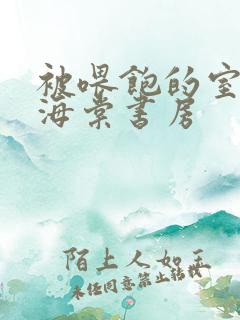 被喂饱的室
海棠书房
陌上人如玉
未经同意禁止转载